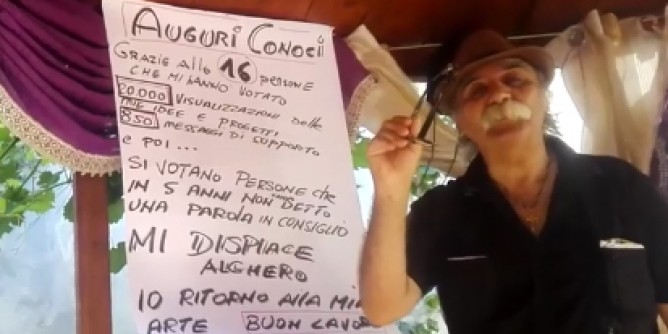 AUGURI CONOCI
GRAZIE Alle 16 persone
CHE MI hANNO VOTATO
20.000 VISUALIZZAZIONI delle
MIE IDEE E PROGETTI
850 MESSAGGI DI SUPPORTO
e poi...
SI VOTANO PERSONE Che
IN 5 ANNI NON hANNO DETTO
UNA PAROLA IN CONSIGLIO
MI DISPIACE
ALGHERO
IO RITORNO AllA MIA
ARTE BUON LAVORO